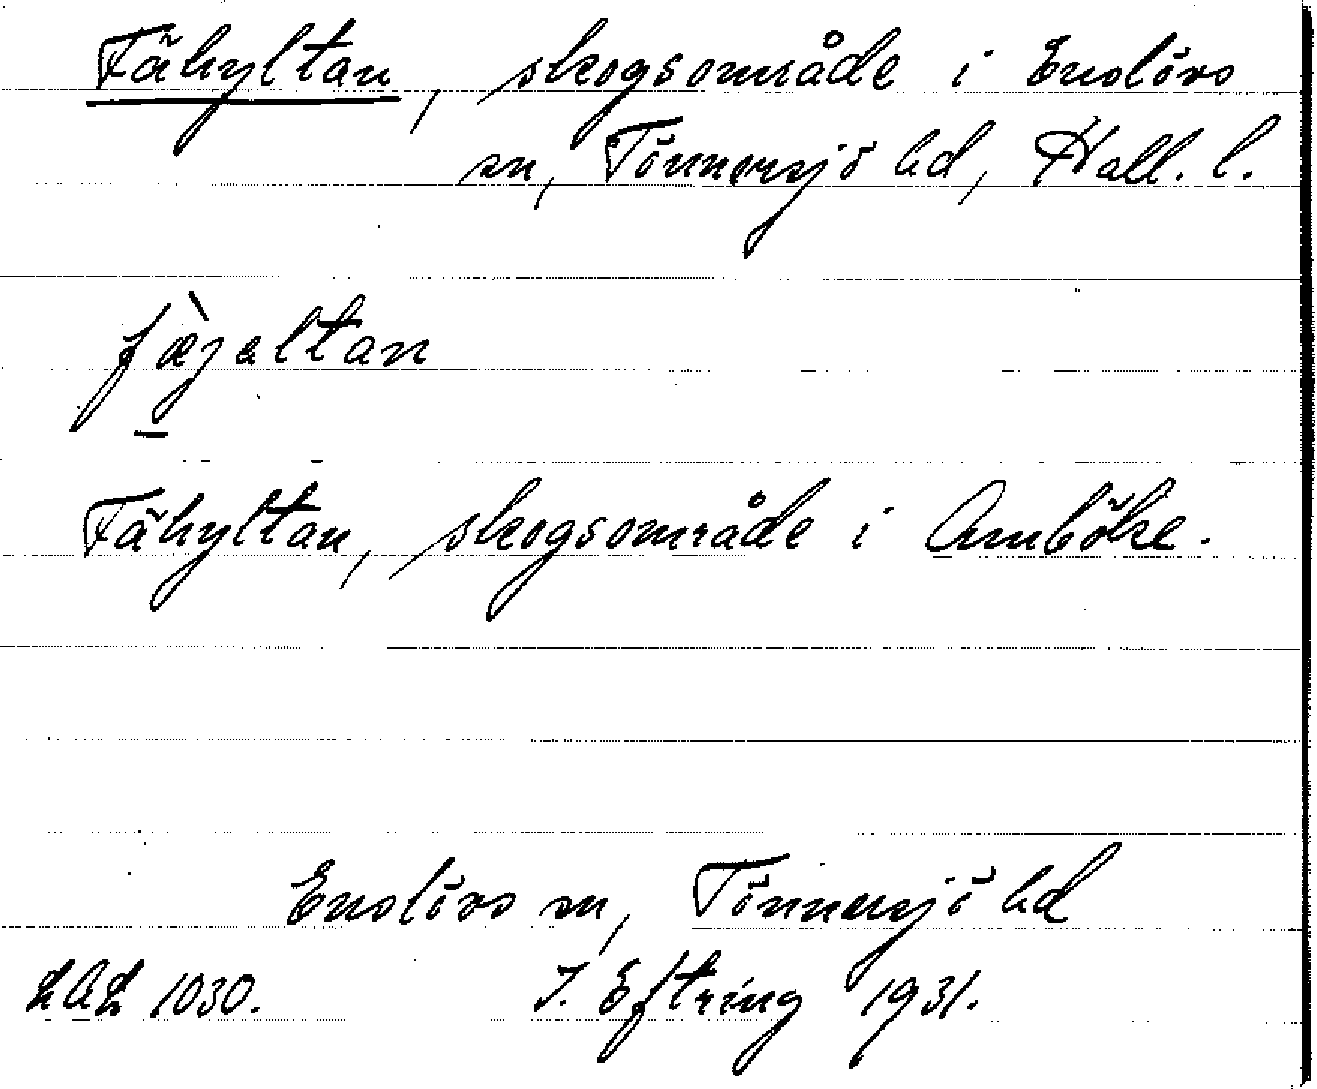 Fähyltan, skogsområde i Enslövs
sn, Tönnersjö hd, Hall. l.
fæ̀jaltan
Fähyltan, skogsområde i Amböke.
Enslövs sn, Tönnersjö hd
LAL 1030. I. Eftring 1931.